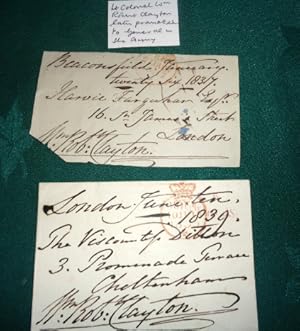 Lt Colonel Wm
Robert Clayton
later promoted
to General in
the Army
Beaconsfield January
twenty six 1837
Harvie Farquhar Esqr.
16. St. James's Street
London
Wm Robt Clayton.
London June ten.
1839.
The Viscountss Dillon
3. Promenade Terrace
Cheltenham
Wm Robt Clayton.